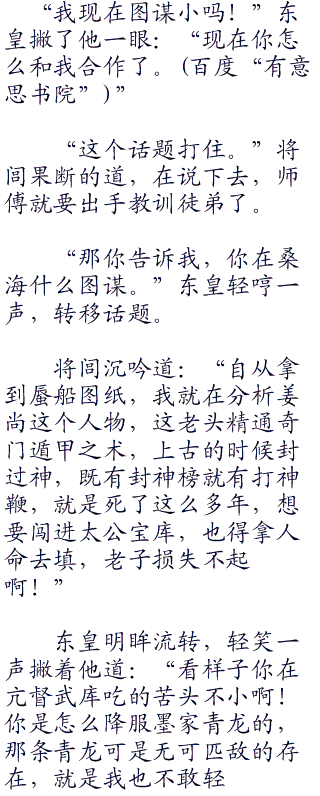 “我现在图谋小吗！”东
皇撇了他一眼：“现在你怎
么和我合作了。(百度“有意
思书院”)”
“这个话题打住。”将
闾果断的道，在说下去，师
傅就要出手教训徒弟了。
“那你告诉我，你在桑
海什么图谋。”东皇轻哼一
声，转移话题。
将闾沉吟道：“自从拿
到蜃船图纸，我就在分析姜
尚这个人物，这老头精通奇
门遁甲之术，上古的时候封
过神，既有封神榜就有打神
鞭，就是死了这么多年，想
要闯进太公宝库，也得拿人
命去填，老子损失不起
啊！”
东皇明眸流转，轻笑一
声撇着他道：“看样子你在
亢督武库吃的苦头不小啊！
你是怎么降服墨家青龙的，
那条青龙可是无可匹敌的存
在，就是我也不敢轻